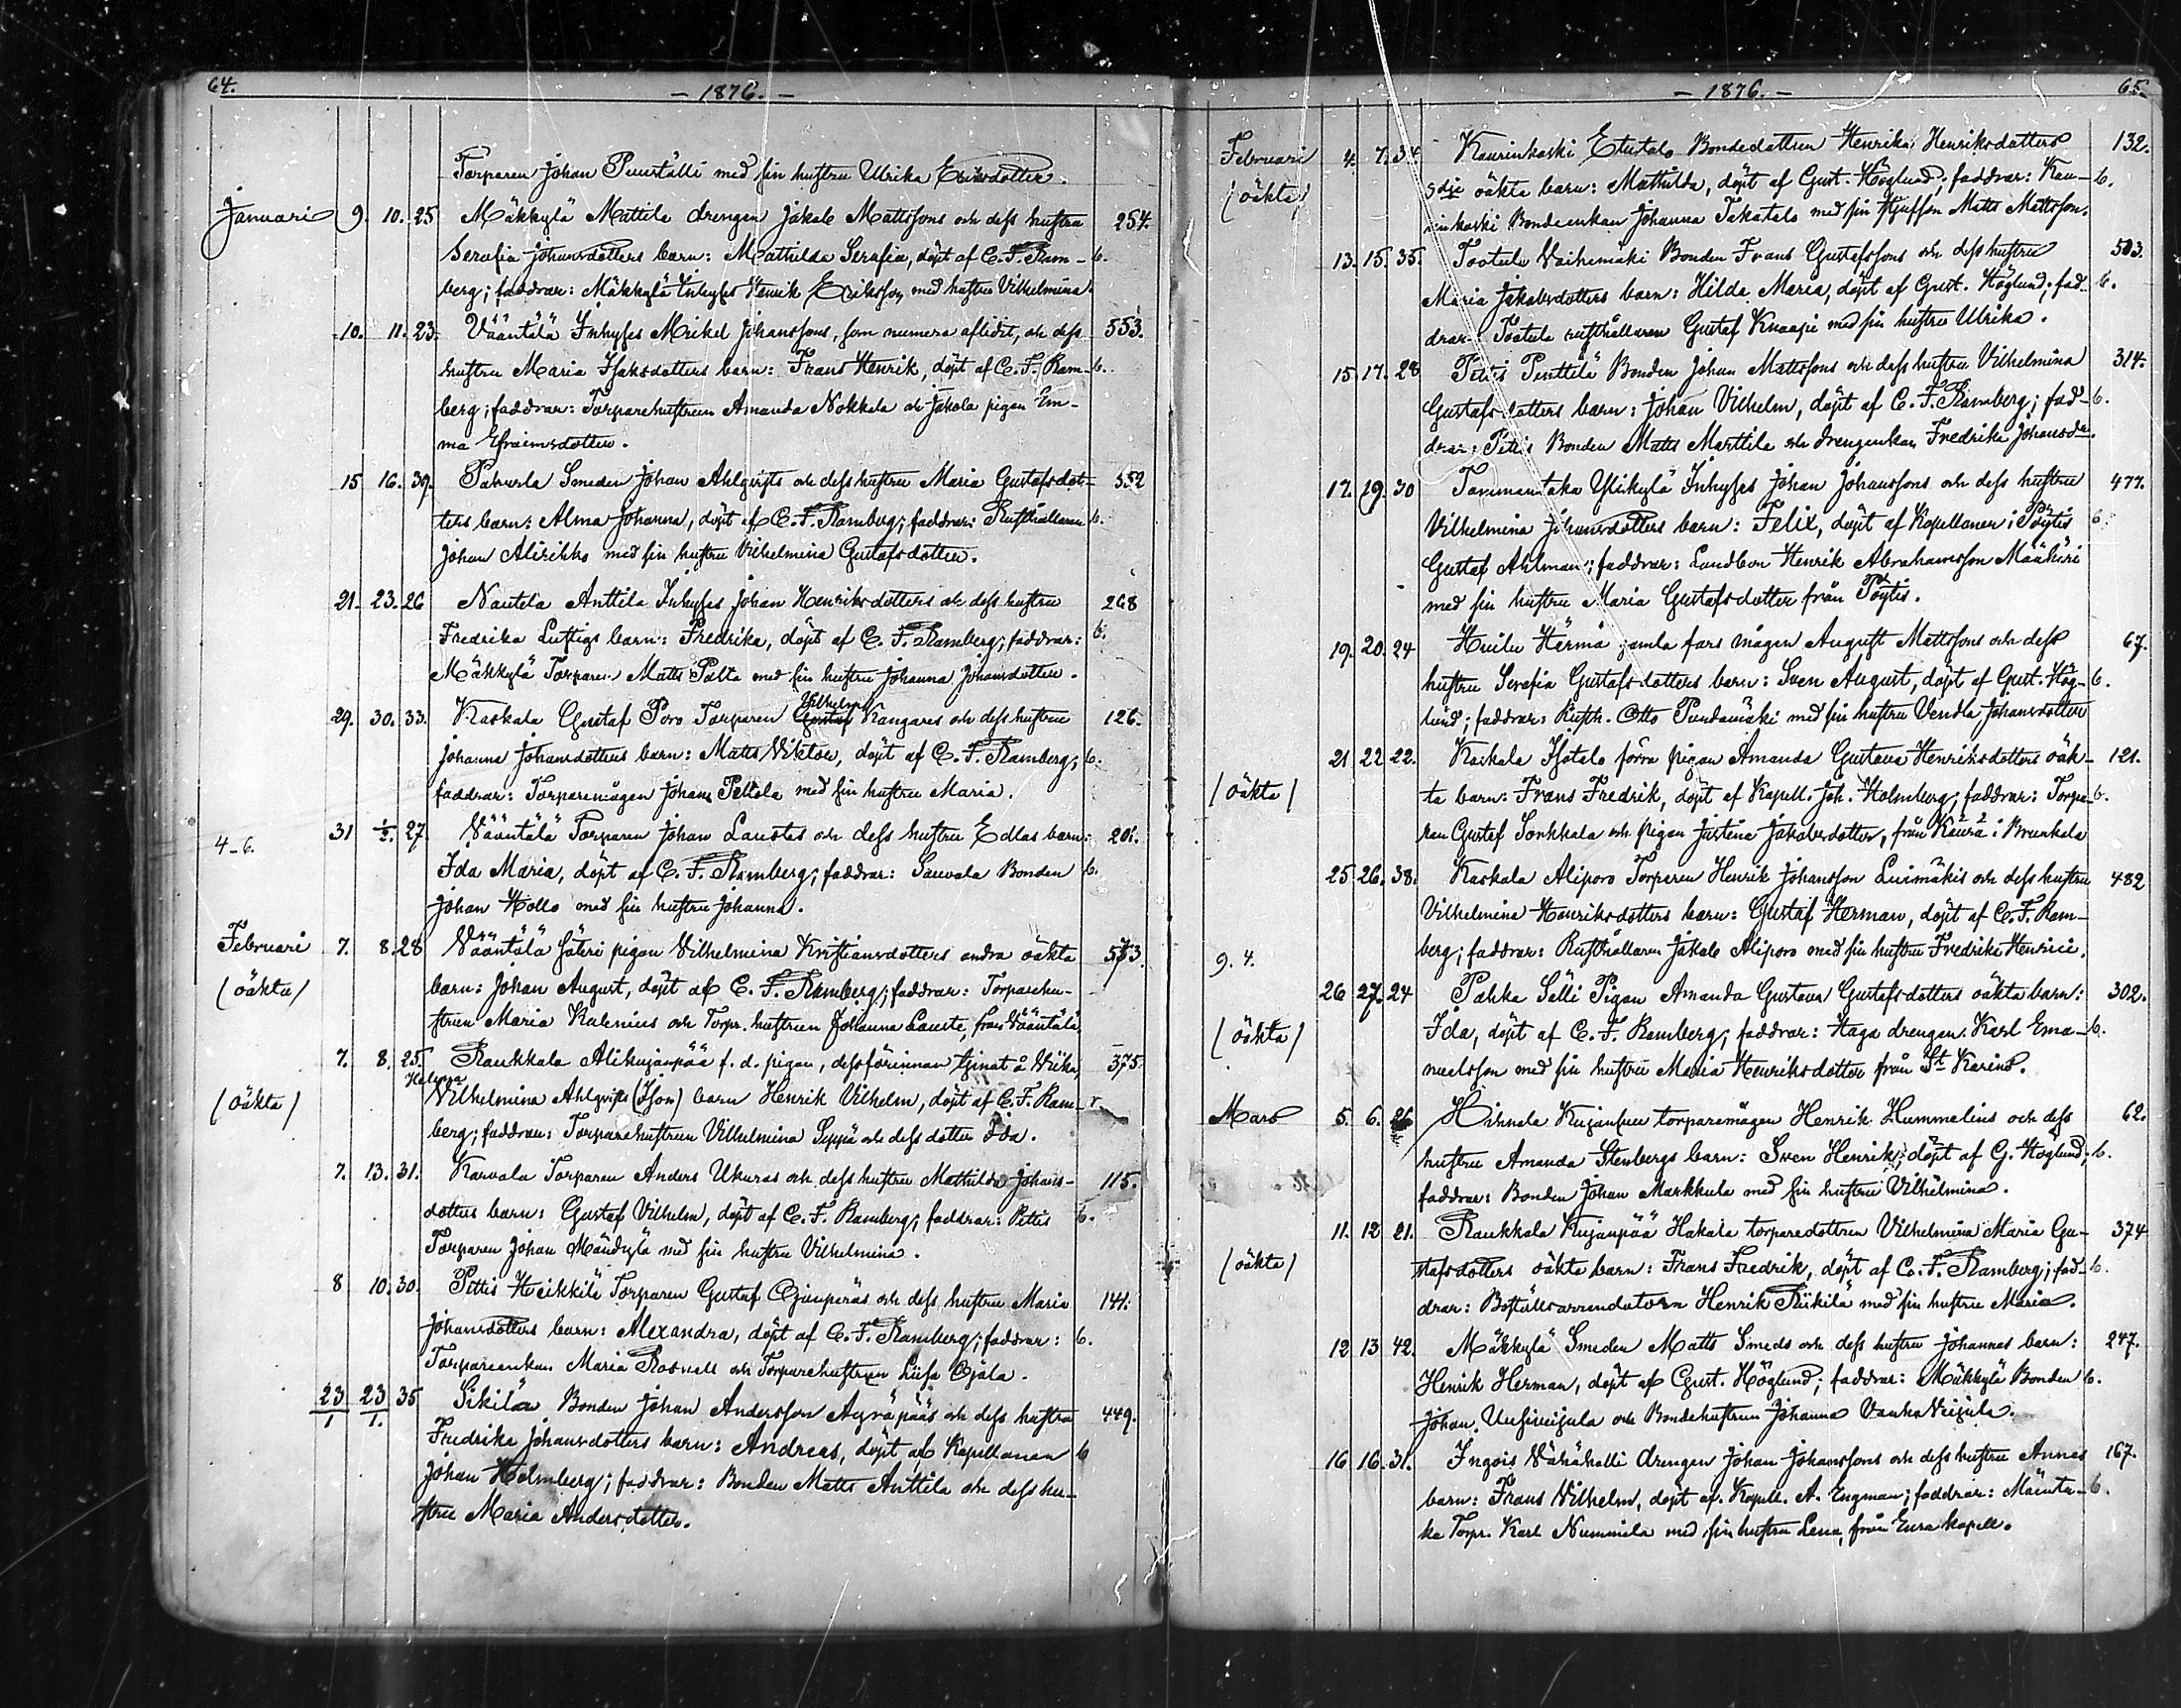 64.
- 1876. -
Torparen Johan Puuställi med sin hustru Ulrika Eriksdotter.
Januari 9. 10. 25 Mäkkylä Mattila drengen Jakob Mattssons och dess hustru 254.
Serafia Johansdotters barn: Mathilda Serafia, döpt af C. F. Ram- b.
berg; faddrar: Mäkkylä Inhyses Henrik Eriksson med hustru Vilhelmina.
10. 11. 23. Vääntälä Inhyses Mickel Johanssons, som numera aflidit, och dess 553.
hustru Maria Isaksdotters barn: Frans Henrik, döpt af C. F. Ram- b.
berg; faddrar: Torparehustrun Amanda Nokkala och Jakola pigan Em-
ma Efraimsdotter.
15 16. 39. Pahurla Smeden Johan Ahlqvists och dess hustru Maria Gustafsdot- 552
ters barn: Alma Johanna, döpt af C. F. Ramberg; faddrar: Rusthållaren b.
Johan Alirikko med sin hustru Vilhelmina Gustafsdotter.
21. 23. 26 Nautela Anttila Inhyses Johan Henriksdotters och dess hustru 268
Fredrika Luftigs barn: Fredrika, döpt af C. F. Ramberg; faddrar: b.
Mäkkylä Torparen Matts Palta med sin hustru Johanna Johansdotter.
Vilhelm
29. 30. 33. Kaskala Gustaf Poro Torparen Gustaf Kangares och dess hustru 126.
Johanna Johansdotters barn: Matts Viktor, döpt af C. F. Ramberg; b.
faddrar: Torparemågen Johan Peltola med sin hustru Maria.
4-6. 31 1/2. 27. Vääntälä Torparen Johan Laustes och dess hustru Edlas barn: 201.
Ida Maria, döpt af C. F. Ramberg; faddrar: Sauvala Bonden b.
Johan Kollo med sin hustru Johanna.
Februari 7. 8. 28 Vääntälä Säteri pigan Vilhelmina Kristiansdotters andra oäkta 553.
(oäkta) barn: Johan August, döpt af C. F. Ramberg; faddrar: Torparehu-
strun Maria Kulenius och Torpr. hustrun Johanna Lauste, från Vääntälä.
7. 8. 25. Raukkala Alikujanpää f. d. pigan, dessförinnan tjenat å 375.
Helena
(oäkta) Vilhelmina Ahlqvists (Ison) barn Henrik Vilhelm, döpt af C. F. Ram- r.
berg; faddrar: Torparehustrun Vilhelmina Seppä och dess dotter Ida.
7. 13. 31. Karvala Torparen Anders Ukuras och dess hustru Mathilda Johans- 115.
dotters barn: Gustaf Vilhelm, döpt af C. F. Ramberg; faddrar: Pettis b.
Torparen Johan Mändylä med sin hustru Vilhelmina.
8 10. 30. Pettis Heikkilä Torparen Gustaf Ojanperäs och dess hustru Maria 141.
Johansdotters barn: Alexandra, döpt af C. F. Ramberg; faddrar: b.
Torpareenkan Maria Rosnell och Torparehustrun Liisa Ojala.
23/1 23/1. 35 Sikilä Bonden Johan Andersson Äyräpääs och dess hustru 449.
Fredrika Johansdotters barn: Andreas, döpt af Kapellanen b
Johan Holmberg; faddrar: Bonden Matts Anttila och dess hu-
stru Maria Andersdotter.
- 1876. -
65.
Februari 4. 7. 34. Kaurinkoski Etutalo Bondedottren Henrika Henriksdotters 132.
(oäkta) 3dje oäkta barn: Mathilda, döpt af Gust. Höglund; faddrar: Kau- b.
rinkoski Bondeenkan Johanna Takatalo med sin styfson Matts Mattsson.
13. 15. 35. Tootula Vaihimäki Bonden Frans Gustafssons och dess hustru 503.
Maria Jakobsdotters barn: Hilda Maria, döpt af Gust. Höglund; fad- b.
drar: Tootula rusthållaren Gustaf Knaapi med sin hustru Ulrika.
15. 17. 28 Pettis Penttilä Bonden Johan Mattssons och dess hustru Vilhelmina 314.
Gustafsdotters barn: Johan Vilhelm, döpt af C. F. Ramberg; fad- b.
drar: Pettis Bonden Matts Marttila och drengenkan Fredrika Johansdr.
17. 19. 30 Tammentaka Ylikylä Inhyses Johan Johanssons och dess hustru 477.
Vilhelmina Johansdotters barn: Felix, döpt af Kapellanen i Pöytis b.
Gustaf Ahlman; faddrar: Landbon Henrik Abrahamsson Määhiri
med sin hustru Maria Gustafsdotter från Pöytis.
19. 20. 24 Huilu Härmä gamla fars mågen August Mattssons och dess 67.
hustru Serafia Gustafsdotters barn: Sven August, döpt af Gust. Hög- b.
lund; faddrar: Rusth. Otto Pundamäki med sin hustru Vendla Johansdotter
21 22 22. Kaskala Isotalo förra pigan Amanda Gustava Henriksdotters oäk- 121.
(oäkta) ta barn: Frans Fredrik, döpt af Kapell. Joh. Holmberg; faddrar: Torpa- b.
ren Gustaf Sonkkala och pigan Justina Jakobsdotter, från Käurä i Brunkala
25 26. 38. Kaskala Aliporo Torparen Henrik Johansson Luimäkis och dess hustru 482
Vilhelmina Henriksdotters barn: Gustaf Herman, döpt af C. F. Ram-
9. 4. berg; faddrar: Rusthållaren Jakob Aliporo med sin hustru Fredrika Henrici.
26 27. 24 Pahka Sälli Pigan Amanda Gustava Gustafsdotters oäkta barn: 302.
(oäkta) Ida, döpt af C. F. Ramberg; faddrar: Haga drengen Karl Ema- b.
nuelsson med sin hustru Maria Henriksdotter från St Karins.
Mars 5. 6. 26 Hihnala Kujansuu torparemågen Henrik Hummelins och dess 62.
hustru Amanda Stenbergs barn: Sven Henrik, döpt af G. Höglund; b.
faddrar: Bonden Johan Markkula med sin hustru Vilhelmina.
11. 12 21. Raukkala Kujanpää Hakala torparedottren Vilhelmina Maria Gu- 374
(oäkta) stafsdotters oäkta barn: Frans Fredrik, döpt af C. F. Ramberg; fad- b.
drar: Boställsarrendatorn Henrik Riikilä med sin hustru Maria.
12 13 42. Mäkkylä Smeden Matts Smeds och dess hustru Johannas barn: 247.
Henrik Herman, döpt af Gust. Höglund; faddrar: Mäkkylä Bonden b.
Johan Uusiveijula och Bondehustrun Johanna VanhaVeijula.
16 16. 31. Inqois Vähähalli drengen Johan Johanssons och dess hustru Annas 167.
barn: Frans Vilhelm, döpt af Kapell. A. Engman; faddrar: Mäenta- b.
ka Torpr. Karl Nummila med sin hustru Lena, från Eura kapell.